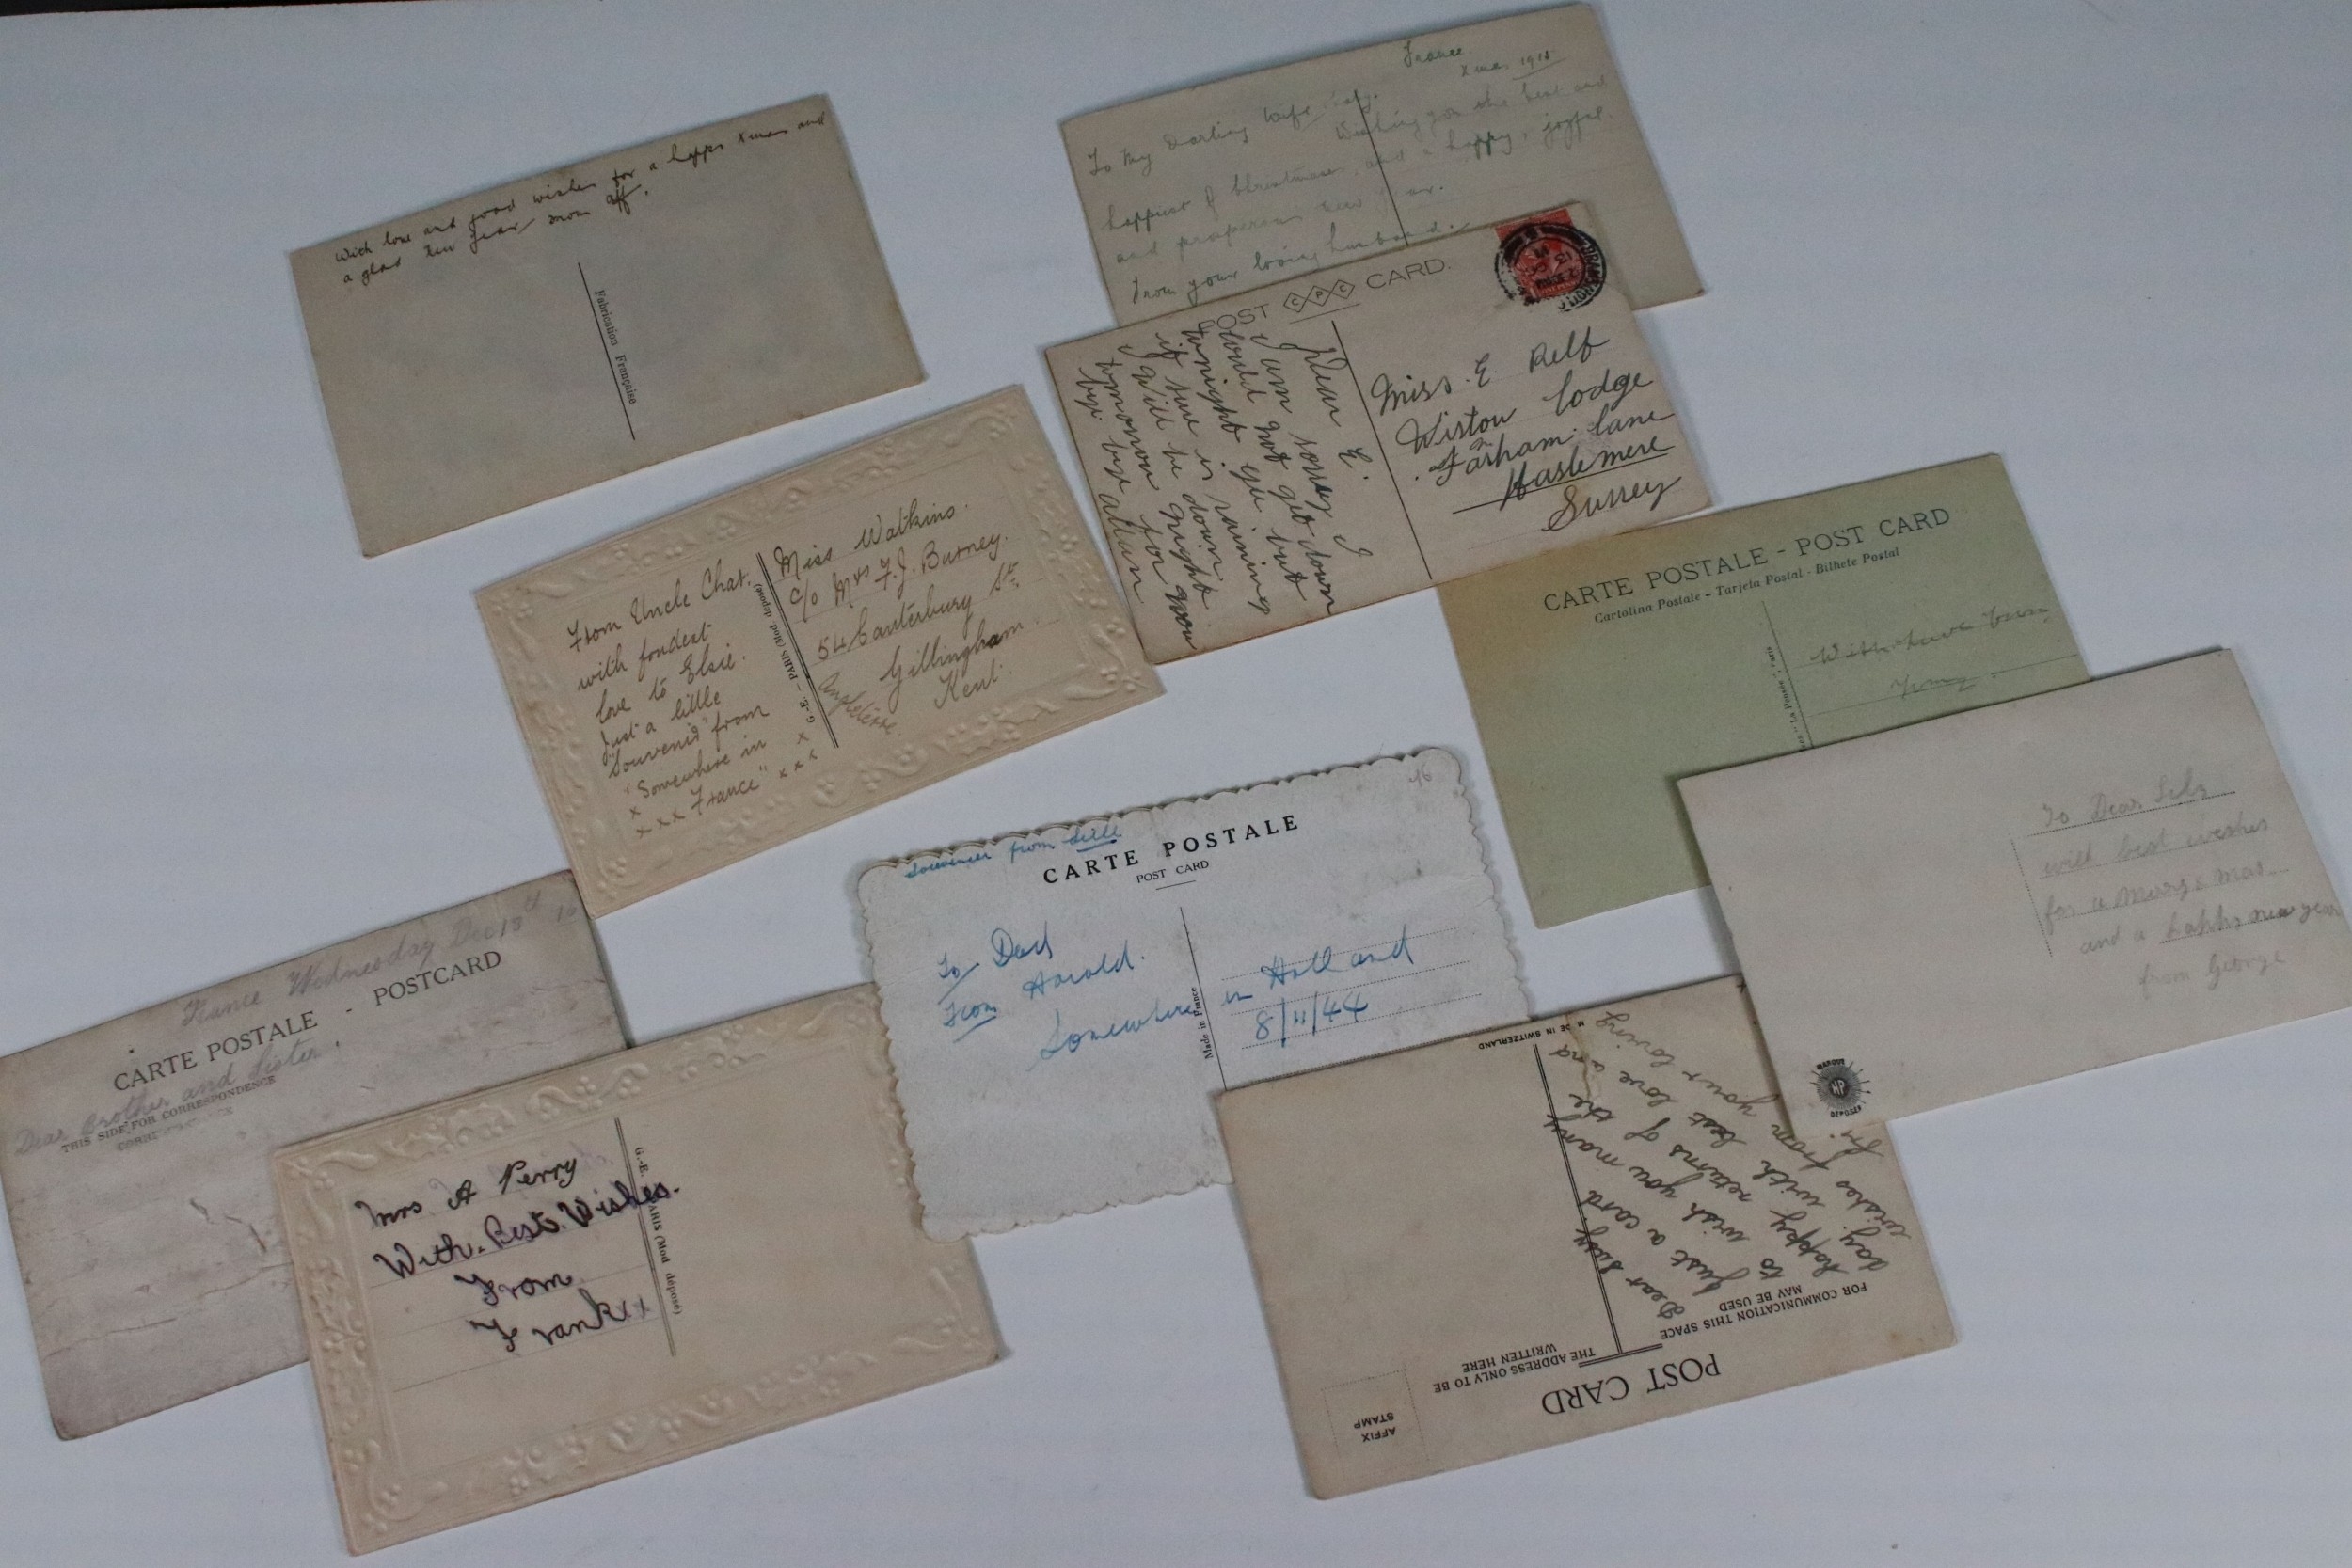 With love and good wishes for a happy Xmas and
a glad New Year from aff.
Fabrication Française
France
Xmas 1918
To My Darling Wife
Wishing you the best and
happiest of Christmas, and a happy, joyful
and prosperous new year.
From your loving husband.
POST CPC CARD.
Dear E.
I am sorry I
could not get down
tonight
if sure is raining
I will be down
tomorrow night
for you
bye bye
Miss. E. Relf
Wistow Lodge
Farham Lane
Haslemere
Surrey
From Uncle Chat.
with fondest
love to Elsie.
Just a little
"Souvenir" from
"Somewhere in
x x x x France" x x x x
G.-E. - PARIS (Mod déposé)
Miss Watkins.
c/o Mrs F. J. Burney.
54 Canterbury St.
Gillingham.
Kent.
Angleterre.
CARTE POSTALE - POST CARD
Cartolina Postale - Tarjeta Postal - Bilhete Postal
With Love from
To Dear
with best wishes
for a Merry Xmas
and a happy new year
from George
MARQUE
HP
DEPOSEE
46
Souvenir from Lille
CARTE POSTALE
POST CARD
To Dad
From Harold.
Somewhere in Holland
8/11/44
Made in France
France Wednesday Dec 13th 16
CARTE POSTALE - POSTCARD
Dear Brother and Sister,
THIS SIDE FOR CORRESPONDENCE
Mrs A Perry
With Best Wishes.
From
Frank x x
G.-E. PARIS (Mod déposé)
POST CARD
FOR COMMUNICATION THIS SPACE
MAY BE USED
THE ADDRESS ONLY TO BE
WRITTEN HERE
AFFIX
STAMP
Dear
Just a card
to wish you many
happy returns of the
day. with best love and
wishes from your loving
MADE IN SWITZERLAND